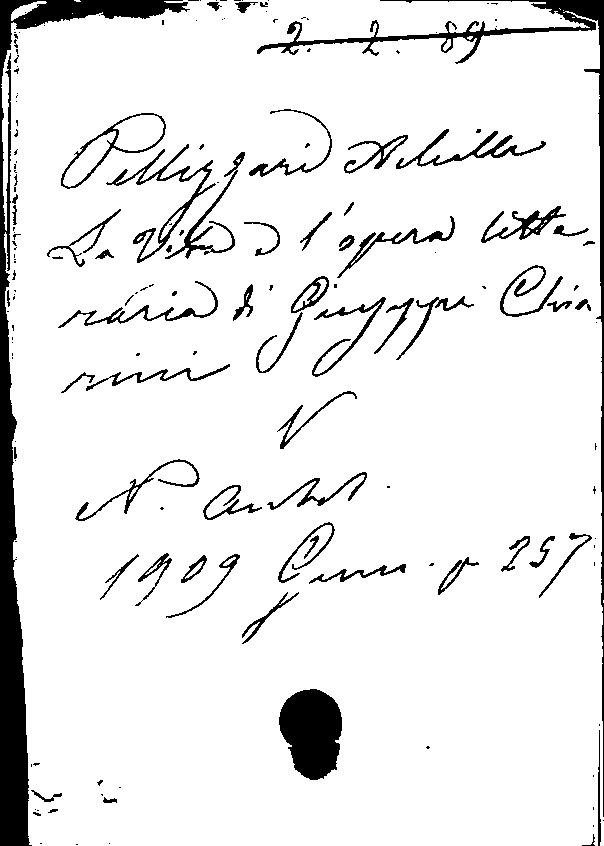 2. 2. 89
Pellizzari Achille
La Vita e l'opera lette-
raria di Giuseppe Chia-
rini
V
N. Antol.
1909 Genn. p 257